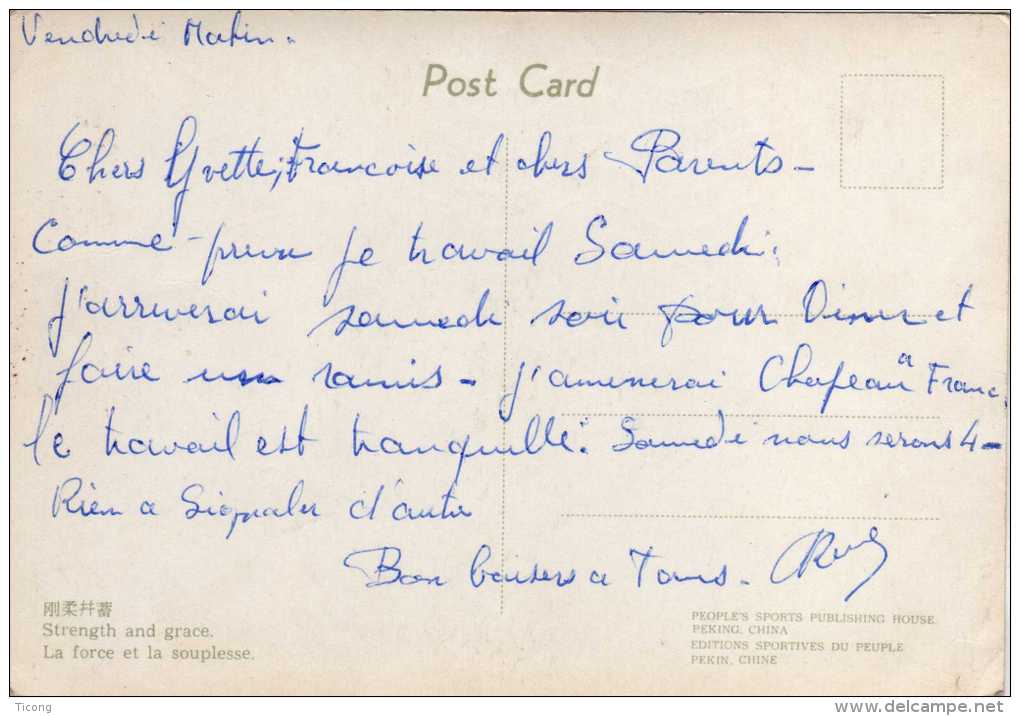 Vendredi Matin.
Post Card
Chers Yvette, Francoise et chers Parents -
Comme prevu je travail Samedi.
j'arriverai samedi soir pour Diner et
faire un ramis - j'amenerai Chapeau a Franc.
le travail est tranquille. Samedi nous serons 4 -
Rien a Signaler d'autre
Bon baisers a Tous -
刚柔幷蓄
Strength and grace.
La force et la souplesse.
PEOPLE'S SPORTS PUBLISHING HOUSE.
PEKING, CHINA
EDITIONS SPORTIVES DU PEUPLE
PEKIN, CHINE
Ticong
www.delcampe.net